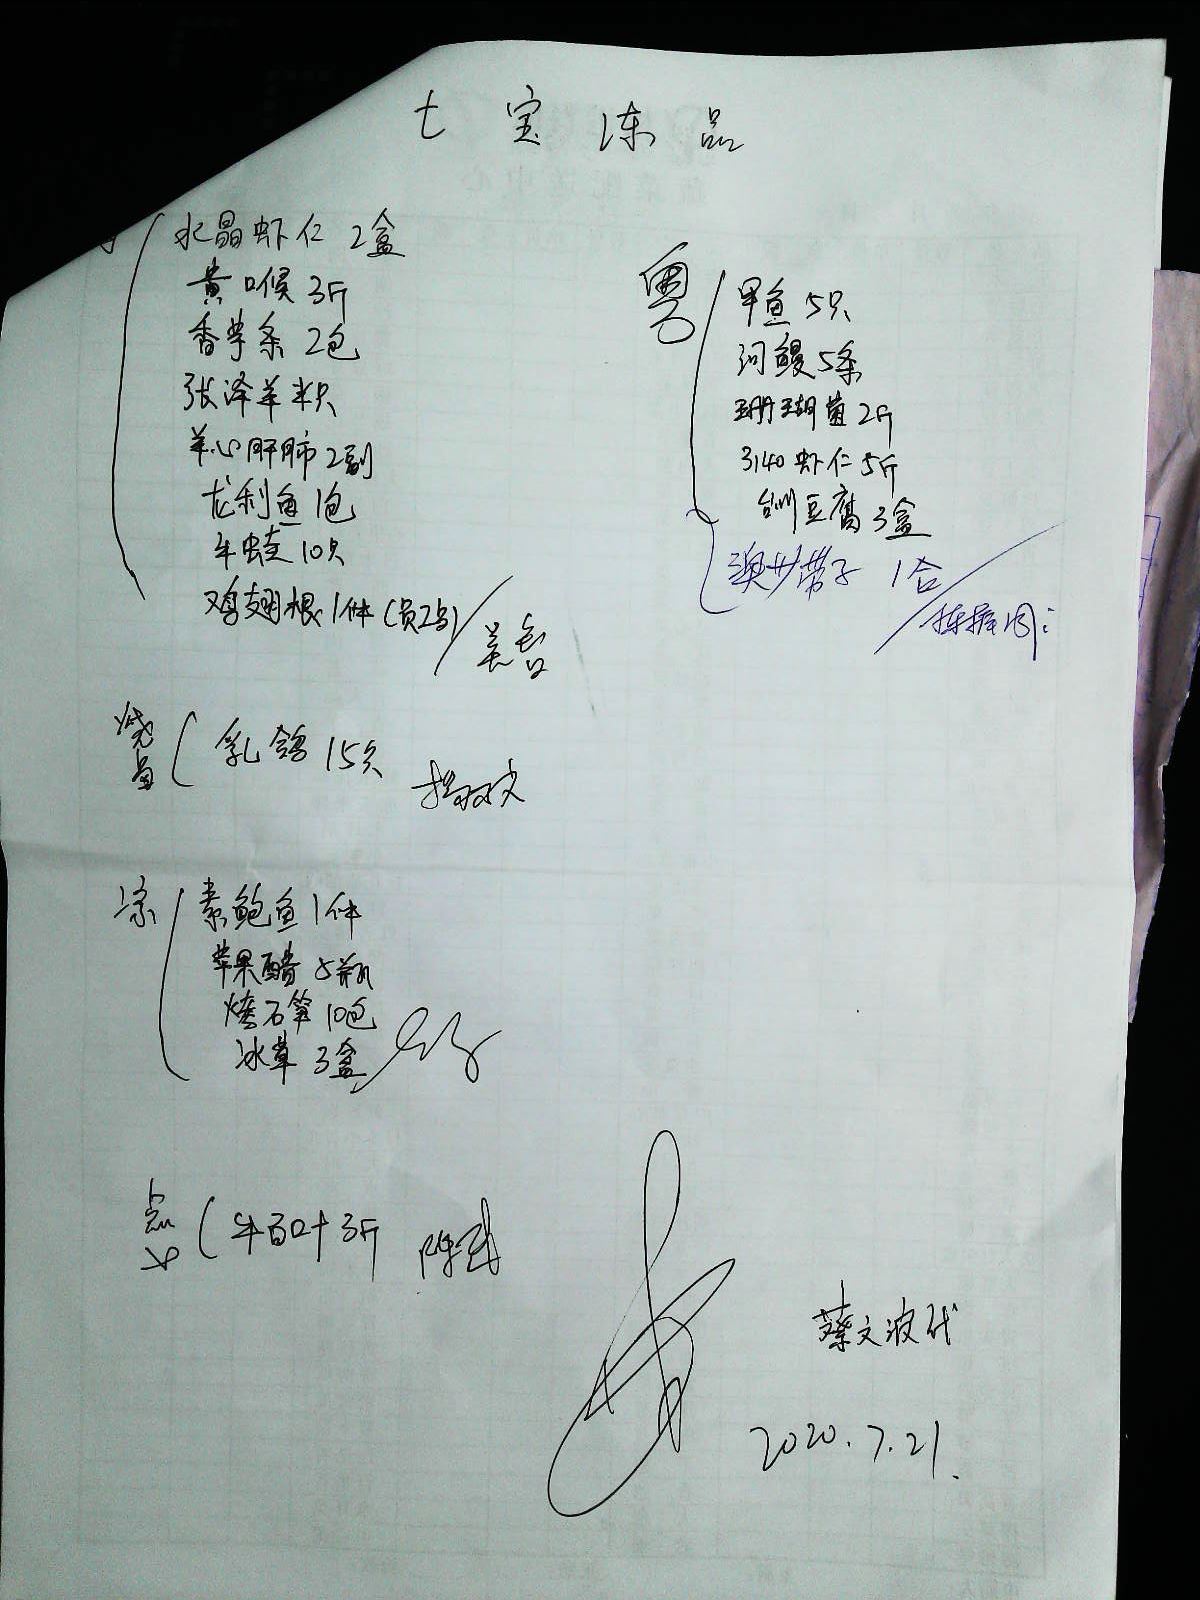 七宝冻品
水晶虾仁 2盒
黄口候 3斤
香芋条 2包
张泽羊 半只
羊心肝肺 2副
龙利鱼 1包
牛蛙 10只
鸡翅根 1件(员工)
粤
甲鱼 5只
河鳗 5条
珊瑚菌 2斤
3140虾仁 5斤
台州豆腐 3盒
澳廿带子 1合
烧
乳鸽 15只
素鲍鱼 1件
苹果醋 5瓶
石笋 10包
冰草 3盒
点
牛百叶 3斤
蔡文波代
2020.7.21.